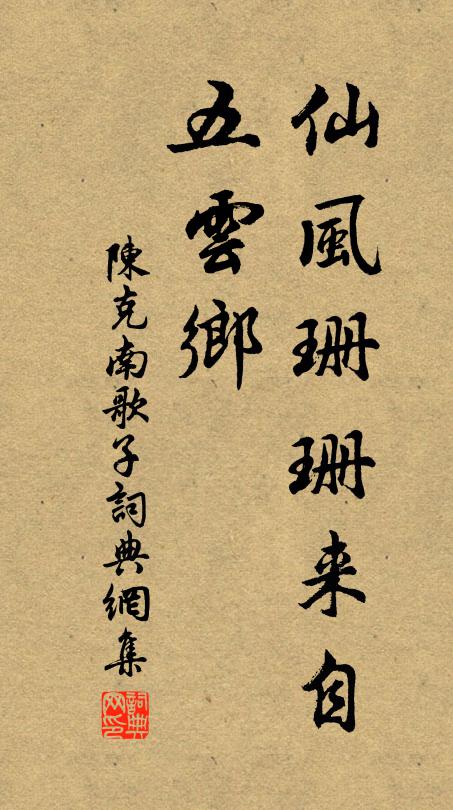 仙風珊珊来自
五雲鄉
陳克南歌子詞典網集
詞典网印